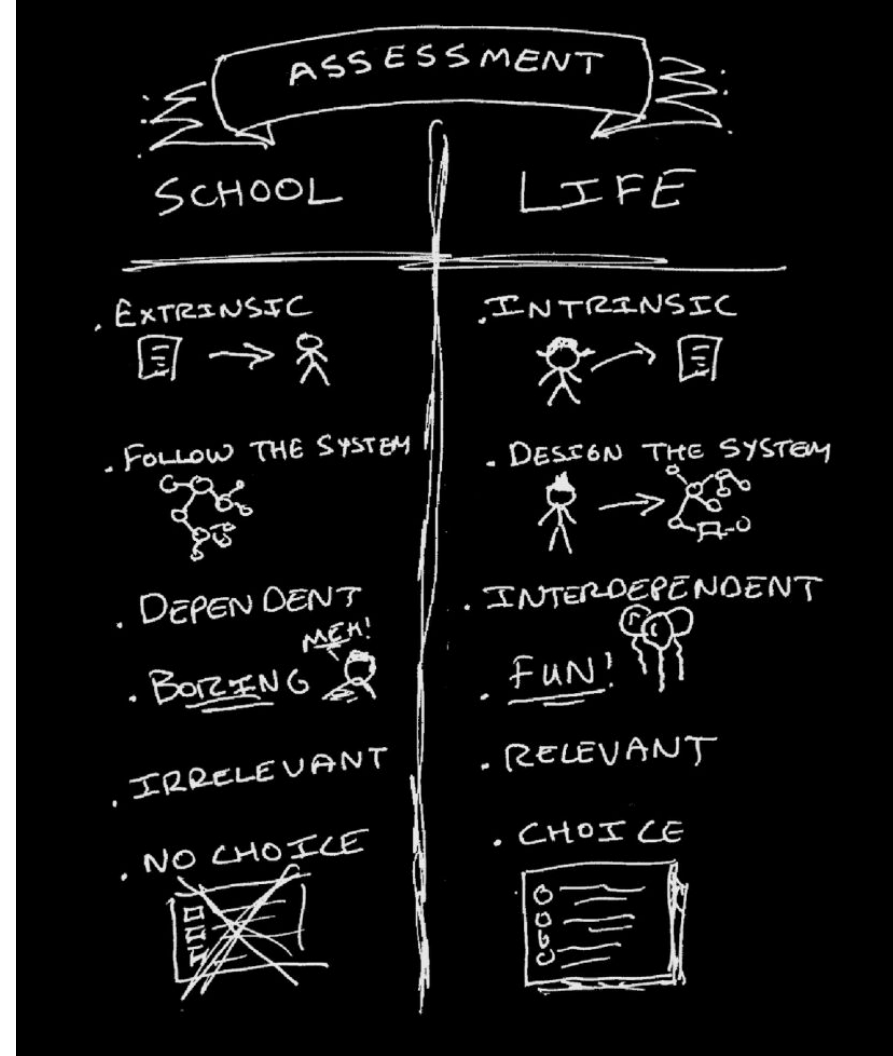 ASSESSMENT
SCHOOL
LIFE
. EXTRINSIC
. FOLLOW THE SYSTEM
. DEPENDENT
. BORING
MEH!
. IRRELEVANT
. NO CHOICE
. INTRINSIC
. DESIGN THE SYSTEM
. INTERDEPENDENT
. FUN!
. RELEVANT
. CHOICE